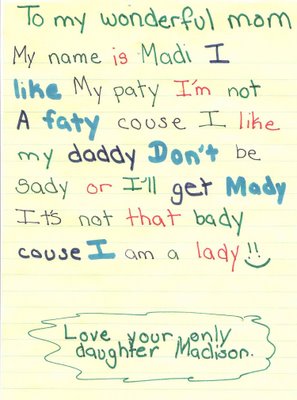 To my wonderful mom
My name is Madi I
like My paty I'm not
A faty couse I like
my daddy Don't be
sady or I'll get Mady
It's not that bady
couse I am a lady!!
Love your only
daughter Madison.